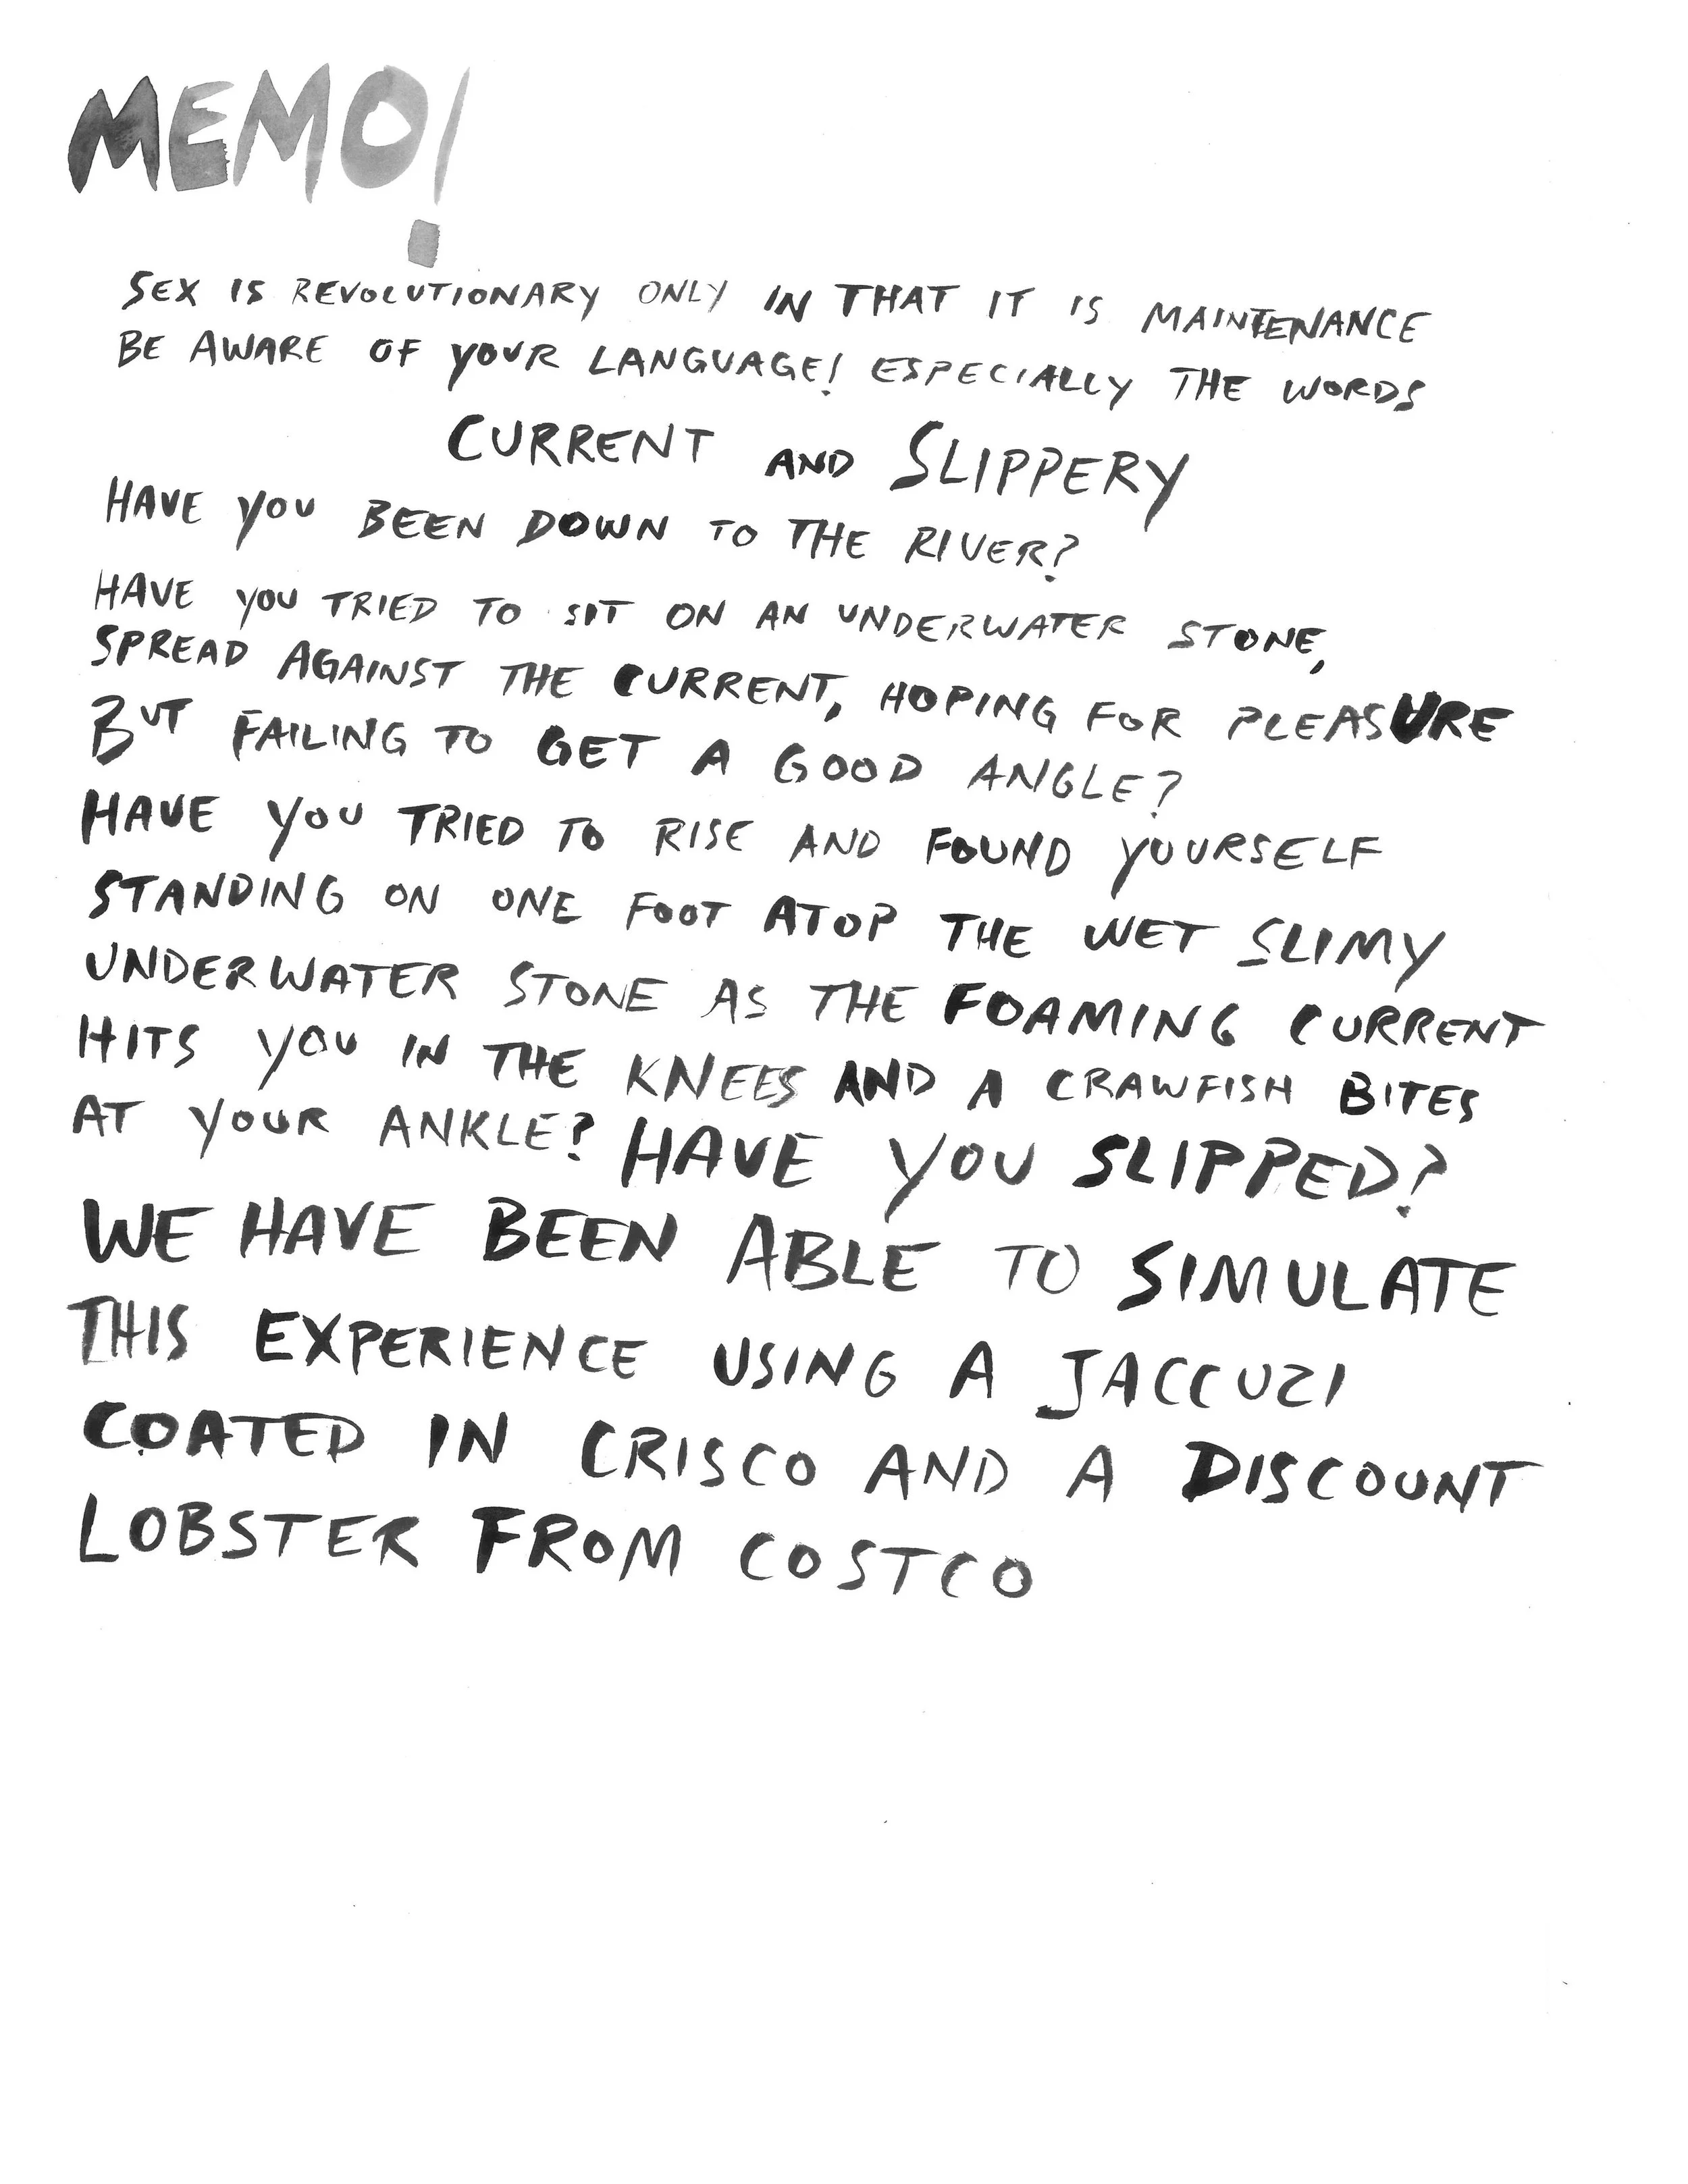 MEMO!
SEX IS REVOLUTIONARY ONLY IN THAT IT IS MAINTENANCE
BE AWARE OF YOUR LANGUAGE! ESPECIALLY THE WORDS
CURRENT AND SLIPPERY
HAVE YOU BEEN DOWN TO THE RIVER?
HAVE YOU TRIED TO SIT ON AN UNDERWATER STONE,
SPREAD AGAINST THE CURRENT, HOPING FOR PLEASURE
BUT FAILING TO GET A GOOD ANGLE?
HAVE YOU TRIED TO RISE AND FOUND YOURSELF
STANDING ON ONE FOOT ATOP THE WET SLIMY
UNDERWATER STONE AS THE FOAMING CURRENT
HITS YOU IN THE KNEES AND A CRAWFISH BITES
AT YOUR ANKLE? HAVE YOU SLIPPED?
WE HAVE BEEN ABLE TO SIMULATE
THIS EXPERIENCE USING A JACCUZI
COATED IN CRISCO AND A DISCOUNT
LOBSTER FROM COSTCO